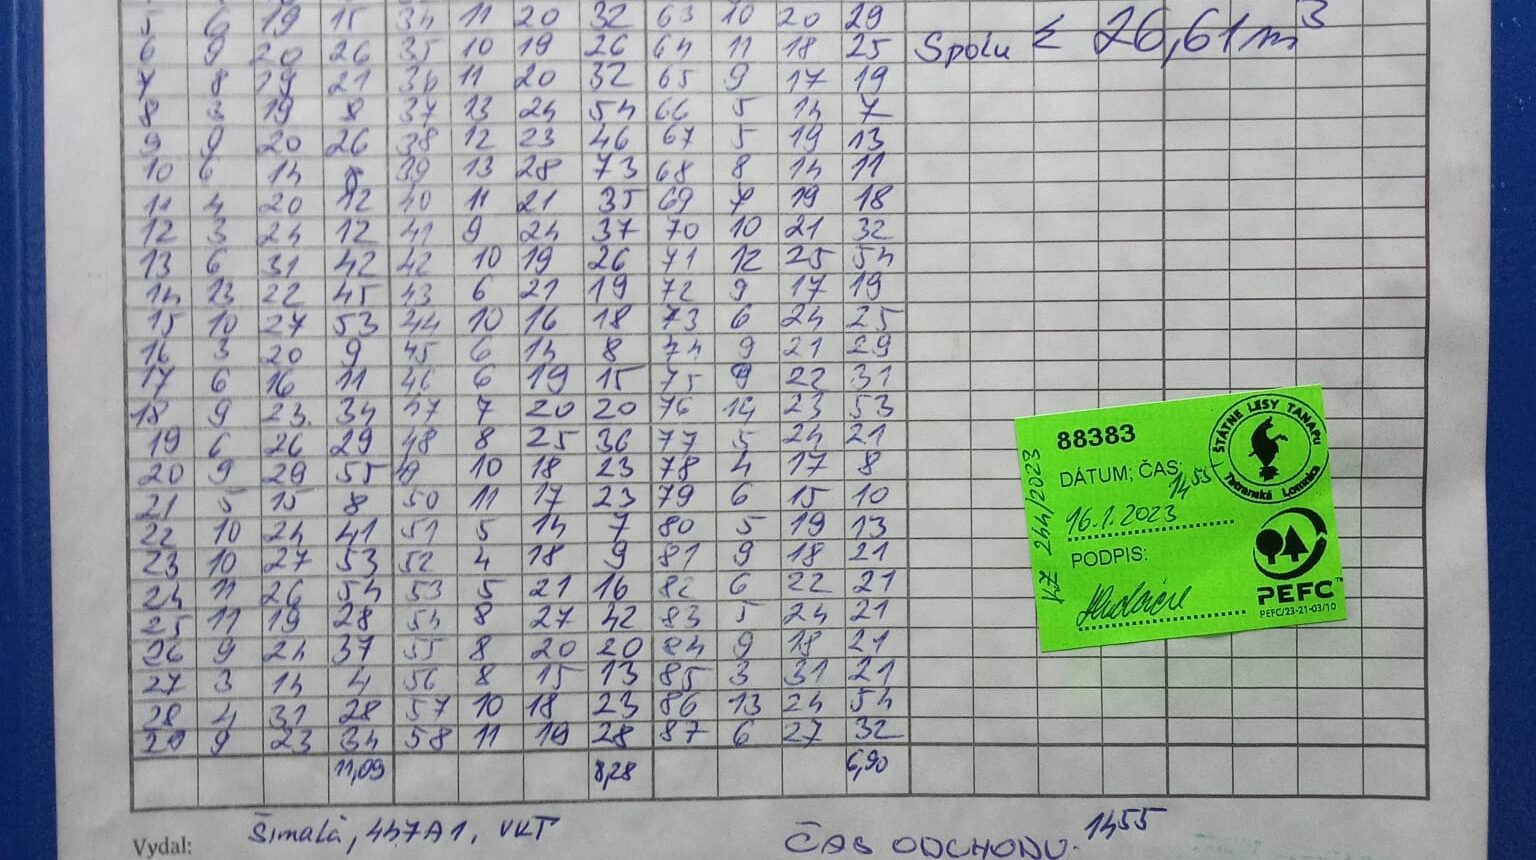 5 6 19 15 34 11 20 32 63 10 20 29
Spolu Σ 26,61 m³
6 9 20 26 35 10 19 26 64 11 18 25
7 8 19 21 36 11 20 32 65 9 17 19
8 3 19 8 37 13 24 54 66 5 14 7
9 9 20 26 38 12 23 46 67 5 19 13
10 6 14 8 39 13 28 73 68 8 14 11
11 4 20 12 40 11 21 35 69 7 19 18
12 3 24 12 41 9 24 37 70 10 21 32
13 6 31 42 42 10 19 26 71 12 25 54
14 13 22 45 43 6 21 19 72 9 17 19
15 10 27 53 44 10 16 18 73 6 24 25
16 3 20 9 45 6 14 8 74 9 21 29
17 6 16 11 46 6 19 15 75 9 22 31
18 9 23 34 47 7 20 20 76 14 23 53
19 6 26 29 48 8 25 36 77 5 24 21
20 9 29 55 49 10 18 23 78 4 17 8
21 5 15 8 50 11 17 23 79 6 15 10
22 10 24 41 51 5 14 7 80 5 19 13
23 10 27 53 52 4 18 9 81 9 18 21
24 11 26 54 53 5 21 16 82 6 22 21
25 11 19 28 54 8 27 42 83 5 24 21
26 9 24 37 55 8 20 20 84 9 18 21
27 3 14 4 56 8 15 13 85 3 31 21
28 4 31 28 57 10 18 23 86 13 24 54
29 9 23 34 58 11 19 28 87 6 27 32
11,09 8,28 6,90
88383
DÁTUM; ČAS: 1455
16.1.2023
PODPIS:
244/2023
ŠTÁTNE LESY TANAPU
Tatranská Lomnica
PEFC™
PEFC/23-21-03/10
Vydal: Šimalá, 447A1, VKT
ČAS ODCHODU: 1455